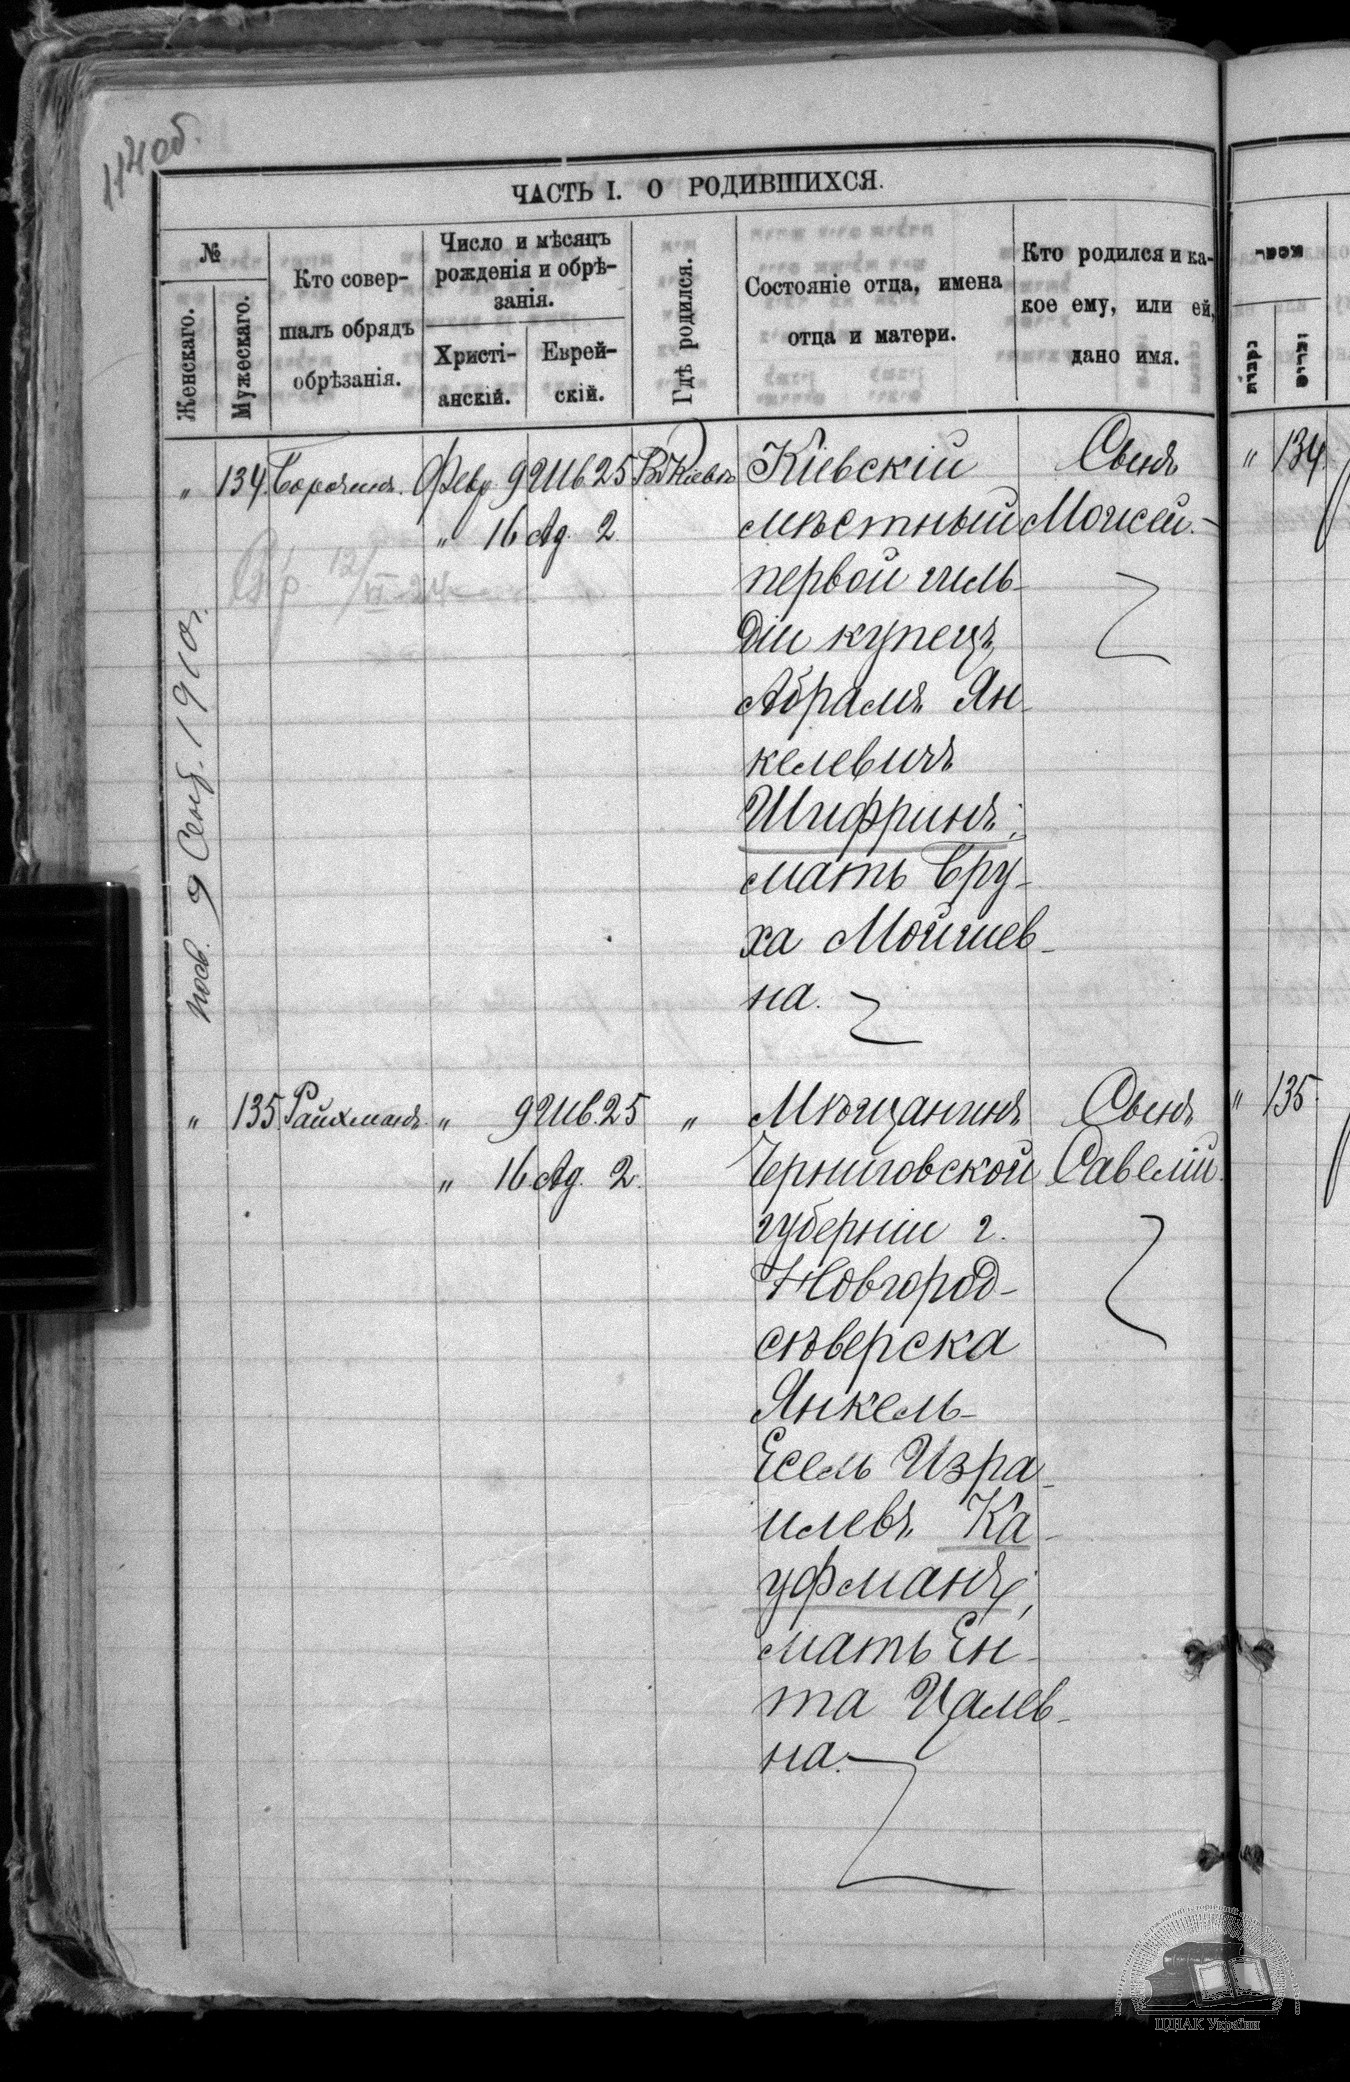 114об.
ЧАСТЬ I. О РОДИВШИХСЯ.
№
Женскаго.
Мужескаго.
Кто совер-
шалъ обрядъ
обрѣзанія.
Число и мѣсяцъ
рожденія и обрѣ-
занія.
Христі-
анскій.
Еврей-
скій.
Гдѣ родился.
Состояніе отца, имена
отца и матери.
Кто родился и ка-
кое ему, или ей,
дано имя.
" 134. Борочинъ. Февр. 9 Шв. 25 Въ Кіевѣ
" 16 Ад. 2.
Кіевскій
мѣстный
первой гиль-
діи купецъ
Абрамъ Ян-
келевичъ
Шифринъ;
мать Бру-
ха Мойшев-
на.
Сынъ
Моисей.-
9 Сент. 1910 г.
" 135 Райхманъ. " 9 Шв. 25 "
" 16 Ад. 2.
Мѣщанинъ
Черниговской
губерніи г.
Новгород-
сѣверска
Янкель-
Есель Изра-
илевъ Ка-
уфманъ;
мать Ен-
та Цалев-
на.
Сынъ
Савелій.
" 134
" 135.
נקבות
זכרים
ЦДІАК України